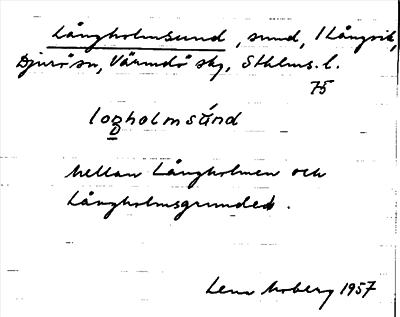 Långholmsund, sund, i Långvik,
Djurö sn, Värmdö skg, Sthlms. l.
75
logholmsúnd
Mellan Långholmen och
Långholmsgrundet.
Lena Moberg 1957